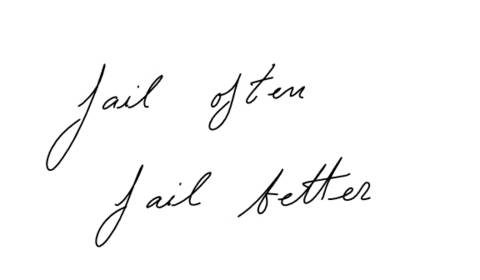 fail often
fail better